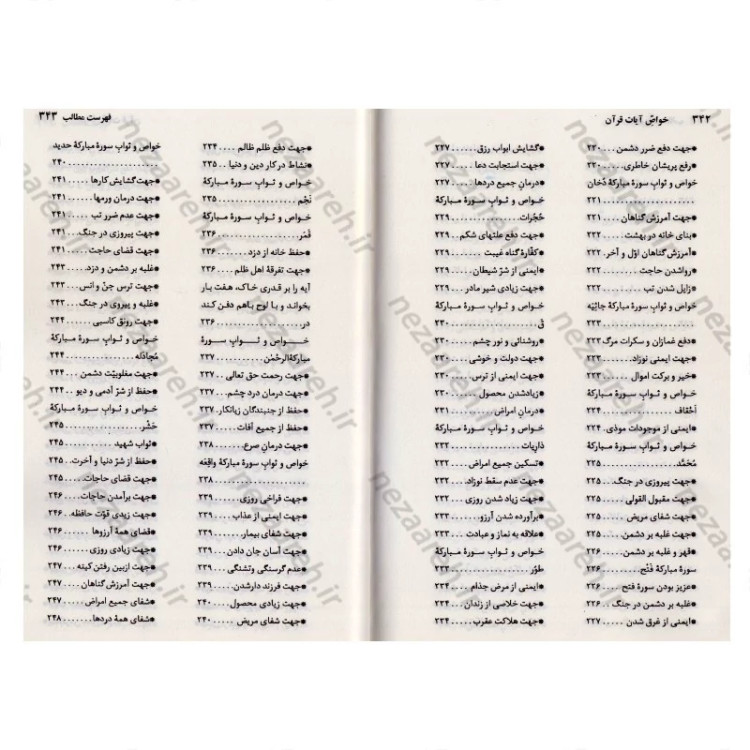 ۳۴۲ خواصّ آیات قرآن
●جهت دفع ضرر دشمن.... ۲۲۰
●رفع پریشان خاطری.... ۲۲۰
خواص و ثواب سورهٔ مبارکهٔ دُخان
۲۲۱
●جهت آمرزش گناهان.... ۲۲۱
●بنای خانه در بهشت.... ۲۲۲
●آمرزش گناهان اوّل و آخر.. ۲۲۲
●رواشدن حاجت.... ۲۲۲
●زایل شدن تب.... ۲۲۲
خواص و ثواب سورهٔ مبارکهٔ جاثیَه
۲۲۳
●دفع غمازان و سکرات مرگ ۲۲۳
●جهت ایمنی نوزاد.... ۲۲۳
●خیر و برکت اموال.... ۲۲۳
خواص و ثواب سورهٔ مبارکهٔ
اَحْقاف.... ۲۲۴
●ایمنی از موجودات موذی. ۲۲۴
خواص و ثواب سورهٔ مبارکهٔ
مُحَمَّد.... ۲۲۵
●جهت پیروزی در جنگ.... ۲۲۵
●جهت مقبول القولی.... ۲۲۵
●جهت شفای مریض.... ۲۲۵
●جهت غلبه بر دشمن.... ۲۲۵
●قهر و غلبه بر دشمن.... ۲۲۶
سورهٔ مبارکهٔ فَتْح.... ۲۲۶
●عزیز بودن سورهٔ فتح.... ۲۲۶
●غلبه بر دشمن در جنگ.. ۲۲۶
●ایمنی از غرق شدن.... ۲۲۷
●گشایش ابواب رزق.... ۲۲۷
●جهت استجابت دعا.... ۲۲۷
●درمان جمیع دردها.... ۲۲۷
خواص و ثواب سورهٔ مبارکهٔ
حُجُرات.... ۲۲۹
●جهت دفع علتهای شکم.. ۲۲۹
●کفّارهٔ گناه غیبت.... ۲۲۹
●ایمنی از شرّ شیطان.... ۲۲۹
●جهت زیادی شیر مادر.... ۲۲۹
خواص و ثواب سورهٔ مبارکهٔ
قٓ.... ۲۳۰
●روشنائی و نور چشم.... ۲۳۰
●جهت دولت و خوشی.... ۲۳۰
●جهت ایمنی از ترس.... ۲۳۰
●زیادشدن محصول.... ۲۳۰
●درمان امراض.... ۲۳۱
خواص و ثواب سورهٔ مبارکهٔ
ذاریات.... ۲۳۲
●تسکین جمیع امراض.... ۲۳۲
●جهت عدم سقط نوزاد.... ۲۳۲
●جهت زیاد شدن روزی.... ۲۳۲
●برآورده شدن آرزو.... ۲۳۳
●علاقه به نماز و عبادت.... ۲۳۳
خواص و ثواب سورهٔ مبارکهٔ
طُوْر.... ۲۳۳
●ایمنی از مرض جذام.... ۲۳۴
●جهت خلاصی از زندان.... ۲۳۴
●جهت هلاکت عقرب.... ۲۳۴
فهرست مطالب ۳۴۳
●جهت دفع ظلم ظالم.... ۲۳۴
●نشاط در کار دین و دنیا.. ۲۳۵
خواص و ثواب سورهٔ مبارکهٔ
نَجْم.... ۲۳۵
خواص و ثواب سورهٔ مبارکهٔ
قَمَر.... ۲۳۶
●حفظ خانه از دزد.... ۲۳۶
●جهت تفرقهٔ اهل ظلم.... ۲۳۶
آیه را بر قدری خاک، هفت بار
بخواند و با لوح باهم دفن کند
در.... ۲۳۶
خواص و ثواب سورهٔ
مبارکهٔ الرَّحْمٰن.... ۲۳۷
●جهت رحمت حق تعالی.. ۲۳۷
●جهت درمان درد چشم.... ۲۳۷
●حفظ از جنبندگان زیانکار. ۲۳۷
●حفظ از جمیع آفات.... ۲۳۷
●جهت درمان صرع.... ۲۳۸
خواص و ثواب سورهٔ مبارکهٔ واقِعَه
۲۳۸
●جهت فراخی روزی.... ۲۳۹
●جهت ایمنی از عذاب.... ۲۳۹
●جهت شفای بیمار.... ۲۳۹
●جهت آسان جان دادن.... ۲۳۹
●عدم گرسنگی و تشنگی.. ۲۳۹
●جهت فرزند دارشدن.... ۲۳۹
●جهت زیادی محصول.... ۲۴۰
●جهت شفای مریض.... ۲۴۰
خواص و ثواب سورهٔ مبارکهٔ حدید
۲۴۰
●جهت گشایش کارها.... ۲۴۱
●جهت درمان ورمها.... ۲۴۱
●جهت عدم ضرر تب.... ۲۴۱
●جهت پیروزی در جنگ.. ۲۴۱
●جهت قضای حاجت.... ۲۴۱
●غلبه بر دشمن و دزد.... ۲۴۳
●جهت ترس جنّ و انس.. ۲۴۳
●غلبه و پیروی در جنگ.. ۲۴۳
●جهت رونق کاسبی.... ۲۴۴
خواص و ثواب سورهٔ مبارکهٔ
مُجادَلَه.... ۲۴۴
●جهت مغلوبیّت دشمن.... ۲۴۴
●حفظ از شرّ آدمی و دیو.. ۲۴۴
خواص و ثواب سورهٔ مبارکهٔ
حَشْر.... ۲۴۵
●ثواب شهید.... ۲۴۵
●حفظ از شرّ دنیا و آخرت.. ۲۴۵
●جهت قضای حاجات.... ۲۴۵
●جهت برآمدن حاجات.... ۲۴۶
●جهت زیدی قوّت حافظه. ۲۴۶
●قضای همهٔ آرزوها.... ۲۴۶
●جهت زیادی روزی.... ۲۴۶
●جهت ازبین رفتن کینه.. ۲۴۷
●جهت آمرزش گناهان.... ۲۴۷
●شفای جمیع امراض.... ۲۴۷
●شفای همهٔ دردها.... ۲۴۸
nezaareh.ir